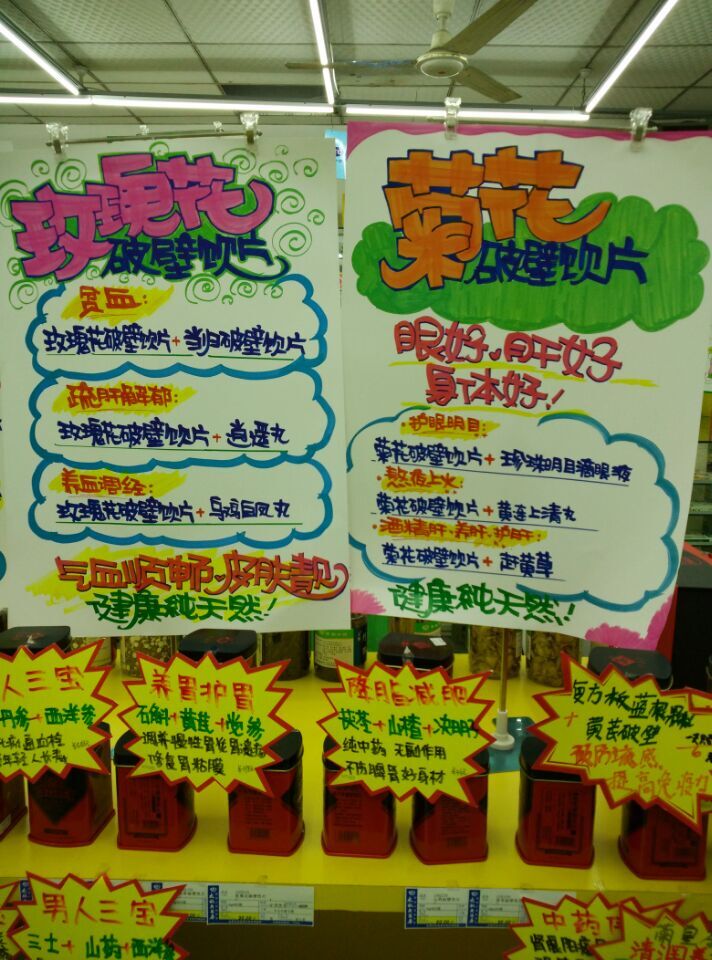 玫瑰花
破壁饮片
贫血:
玫瑰花破壁饮片+当归破壁饮片
疏肝解郁:
玫瑰花破壁饮片+逍遥丸
养血调经:
玫瑰花破壁饮片+乌鸡白凤丸
气血顺畅、皮肤靓
健康纯天然!
菊花
破壁饮片
眼好、肝好
身体好!
护眼明目:
菊花破壁饮片+珍珠明目滴眼液
熬夜上火:
菊花破壁饮片+黄连上清丸
酒精肝·养肝·护肝:
菊花破壁饮片+赶黄草
健康纯天然!!
人三宝
丹参+西洋参
养胃护胃
石斛+黄芪+党参
调养慢性胃炎胃溃疡
修复胃粘膜
降脂减肥
茯苓+山楂+决明子
纯中药 无副作用
不伤脾胃好身材
复方板蓝根颗粒
+黄芪破壁
预防城感
提高免疫力
男人三宝
三七+山药+西洋参
中药